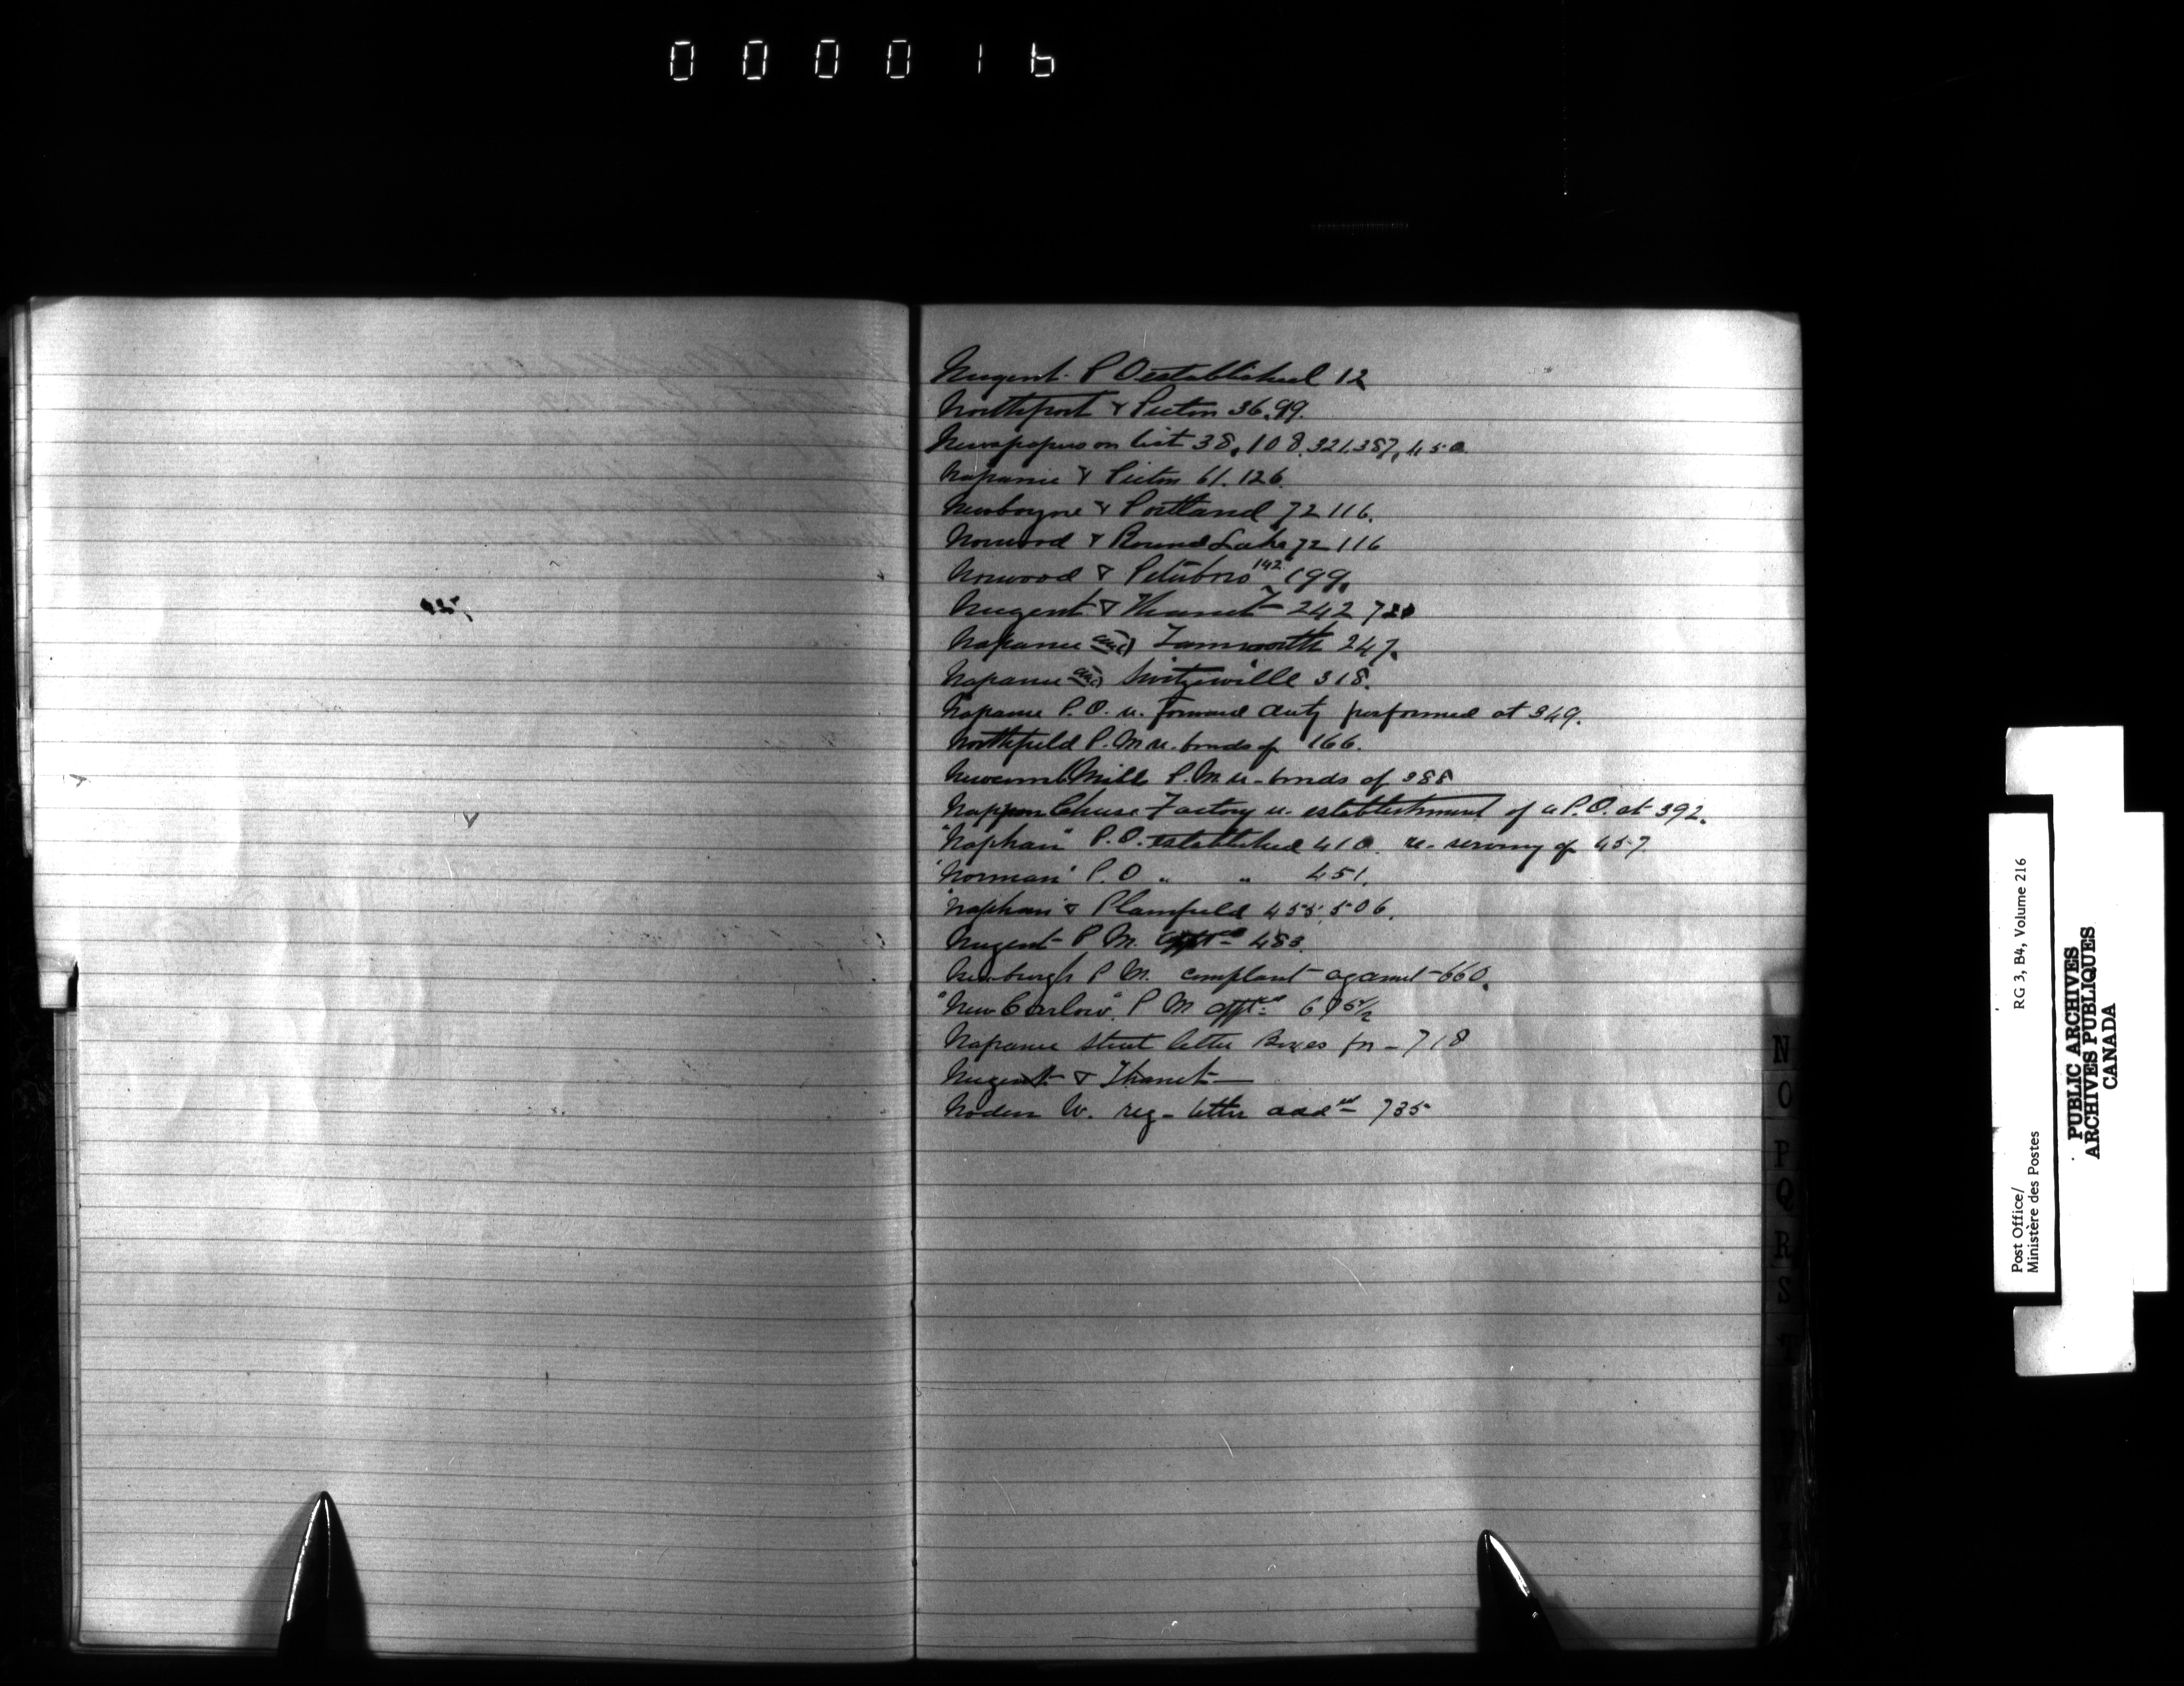 000016
Nugent P O established 12
Northport & Picton 36.99.
Newspapers on list 38, 108.321.387, 450
Napanee & Picton 61.126.
Newboyne & Portland 72 116.
Norwood & Round Lake 72 116
Norwood & Peterboro 142 199.
Nugent & Thanet 242 720
Napanee and Tamworth 247.
Napanee and Switzerville 318.
Napanee P.O. re. forward duty performed at 349.
Northfield P.M re. bonds of 166.
Newcomb Mills P.M re- bonds of 388
Nappan Cheese Factory re. establishment of a P.O. at 392.
"Naphan" P.O. established 410. re- serving of 457
"Norman" P.O " " 451.
"Naphan" & Plainfield 455. 506.
Nugent P M. apptd 483.
Newburgh P M. complaint against 660.
"New Carlow" P M apptd 695 1/2
Napanee street letter Boxes for - 718
Nugent & Thanet
Noden W. reg- letter addd 735
N
O
P
Q
R
S
Post Office/ RG 3, B4, Volume 216
Ministère des Postes
PUBLIC ARCHIVES
ARCHIVES PUBLIQUES
CANADA